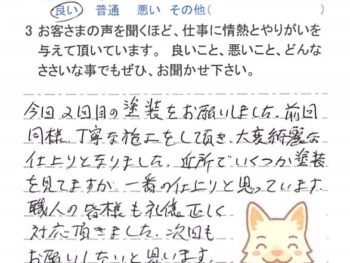 良い 普通 悪い その他(
3 お客さまの声を聞くほど、仕事に情熱とやりがいを
与えて頂いています。 良いこと、悪いこと、どんな
ささいな事でもぜひ、お聞かせ下さい。
今回2回目の塗装をお願いしました。前回
同様、丁寧な施工をして頂き、大変綺麗な
仕上りとなりました。近所でいくつか塗装
を見てますが、一番の仕上りと思っています。
職人の皆様も礼儀正しく
対応頂きました。次回も
お願いしたいと思います。